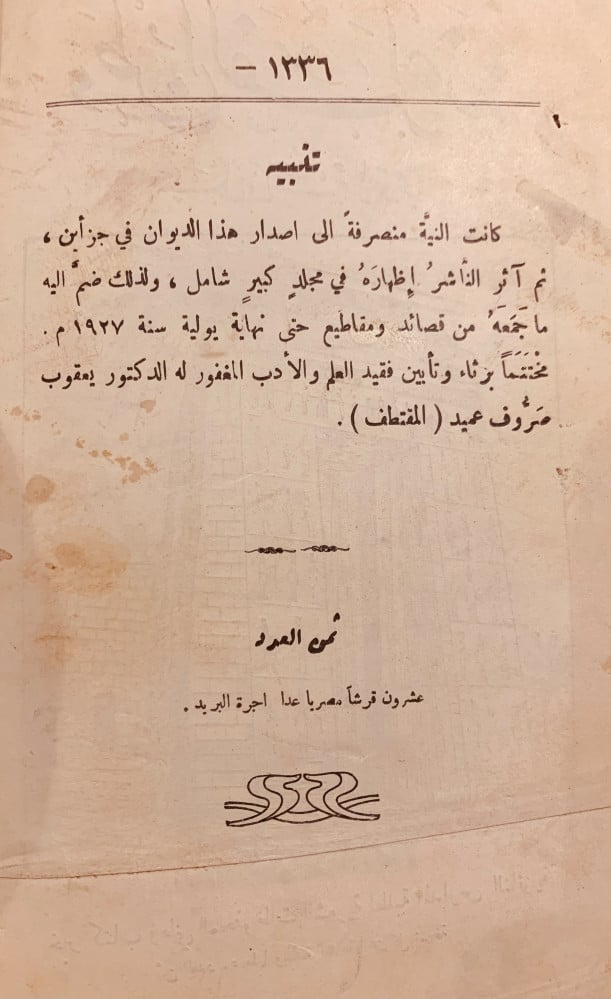 — ١٣٣٦
تنبيه
كانت النيَّة منصرفةً الى اصدار هذا الديوان في جزأين ،
ثم آثر الناشرُ إِظهارَهُ في مجلدٍ كبيرٍ شامل ، ولذلك ضمَّ اليه
ما جَمَعَهُ من قصائد ومقاطيع حتى نهاية يولية سنة ١٩٢٧ م .
مُخْتَتَماً برثاء وتأبين فقيد العلم والأدب المغفور له الدكتور يعقوب
صَرُّوف عميد ( المقتطف ) .
ثمن العدد
عشرون قرشاً مصريا عدا اجرة البريد .